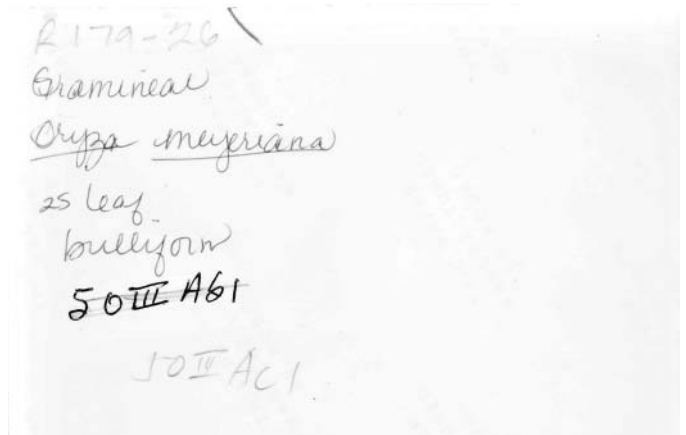 R179-26
Gramineae
Oryza meyeriana
2S leaf
bulliform
50 III A61
50 II AC1